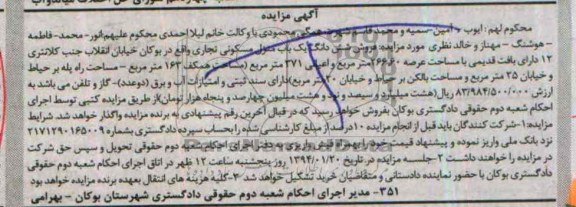 آگهی مزایده
محکوم لهم: ایوب - امین-سمیه و محمد همگی محمودی با وکالت خانم لیلا احمدی محکوم علیهم:انور- محمد- فاطمه
- هوشنگ - مهناز و خالد نظری مورد مزایده: فروش شش دانگ یک باب منزل مسکونی تجاری واقع در بوکان خیابان انقلاب جنب کلانتری
۱۲ دارای بافت قدیمی با مساحت عرصه متر مربع و اعیانی ۲۷۱ متر مربع (مساحت همکف ۱۶۳ متر مربع - مساحت راه پله بر حیاط
و خیابان ۲۵ متر مربع و مساحت بالکن بر حیاط و خیابان ۲۰ متر مربع) دارای سند ثبتی و امتیازات آب و برق (دوعدد)- گاز و تلفن می باشد به
ارزش ۸۳/۹۸۴/۵۰۰/۰۰۰ ریال(هشت میلیارد و سیصد و نود و هشت میلیون چهارصد و پنجاه هزار تومان)از طریق مزایده کتبی توسط اجرای
احکام شعبه دوم حقوقی دادگستری بوکان بفروش خواهد رسید که در قبال آخرین رقم پیشنهادی به برنده مزایده واگذار خواهد شد. شرایط
مزایده: ۱-شرکت کنندگان باید قبل از انجام مزایده ۱۰ درصد از مبلغ کارشناسی شده را بحساب سپرده دادگستری بشماره ۲۱۷۱۲۹۰۱۶۵۰۰۹
نزد بانک ملی واریز نموده و پیشنهاد قیمت خود را بهمراه فیش واریزی به دفتر اجرای احکام شعبه دوم حقوقی تحویل و سپس حق شرکت
در مزایده را خواهند داشت ۲-جلسه مزایده در تاریخ ۱۳۹۴/۰۱/۲۰ روز پنجشنبه ساعت ۱۲ ظهر در اتاق اجرای احکام شعبه دوم حقوقی
دادگستری بوکان با حضور نماینده دادستانی و متقاضیان خرید تشکیل خواهد شد ۳-کلیه هزینه های انتقال بعهده برنده مزایده خواهد بود
۳۵۱- مدیر اجرای احکام شعبه دوم حقوقی دادگستری شهرستان بوکان - بهرامی